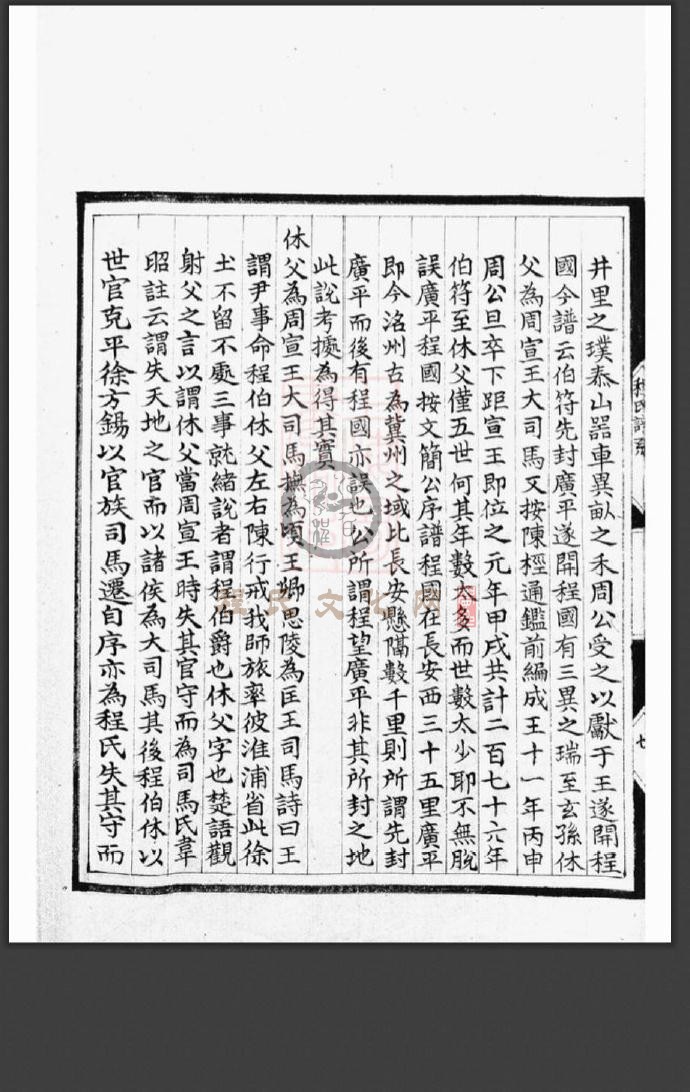 井里之璞泰山器車異畝之禾周公受之以獻于王遂開程
國今譜云伯符先封廣平遂開程國有三異之瑞至玄孫休
父為周宣王大司馬又按陳桱通鑑前編成王十一年丙申
周公旦卒下距宣王即位之元年甲戌共計二百七十六年
伯符至休父僅五世何其年數太多而世數太少耶不無脫
誤廣平程國按文簡公序譜程國在長安西三十五里廣平
即今洺州古為冀州之域比長安懸隔數千里則所謂先封
廣平而後有程國亦誤也公所謂程望廣平非其所封之地
此說考據為得其實
休父為周宣王大司馬撫為頃王卿思陵為匡王司馬詩曰王
謂尹事命程伯休父左右陳行戒我師旅率彼淮浦省此徐
土不留不處三事就緒說者謂程伯爵也休父字也楚語觀
射父之言以謂休父當周宣王時失其官守而為司馬氏韋
昭註云謂失天地之官而以諸侯為大司馬其後程伯休以
世官克平徐方錫以官族司馬遷自序亦為程氏失其守而
程氏譜系
七
程氏文化网